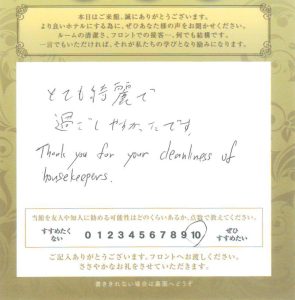 本日はご来館、誠にありがとうございます。
より良いホテルにする為に、ぜひあなた様の声をお聞かせください。
ルームの清潔さ、フロントでの接客…、何でも結構です。
一言でもいただければ、それが私たちの学びとなり励みになります。
とても綺麗で
過ごしやすかったです。
Thank you for your cleanliness of
housekeepers.
当館を友人や知人に勧める可能性はどのくらいあるか、点数で教えてください。
すすめたくない 0 1 2 3 4 5 6 7 8 9 10 ぜひすすめたい
ご記入ありがとうございます。フロントへお渡しください。
ささやかなお礼をさせていただきます。
書ききれない場合は裏面へどうぞ